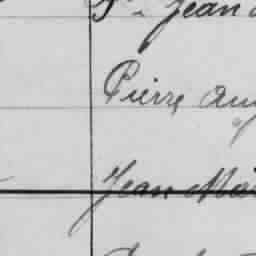 Jean
Pierre Au
Jean Ma